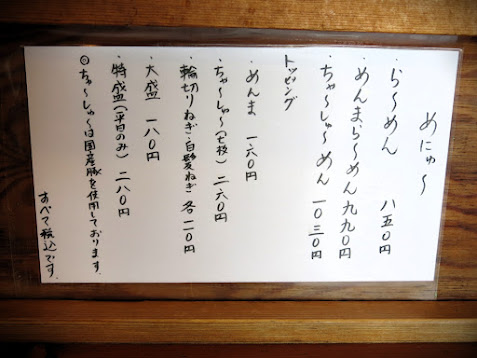 めにゅ〜
・らーめん 八五〇円
・めんまらーめん 九九〇円
・ちゃーしゅーめん 一〇三〇円
トッピング
・めんま 一六〇円
・ちゃーしゅー(七枚) 二六〇円
・輪切りねぎ・白髪ねぎ 各二〇円
・大盛 一八〇円
・特盛(平日のみ) 二八〇円
◎ちゃーしゅーは国産豚を使用しております。
すべて税込です。